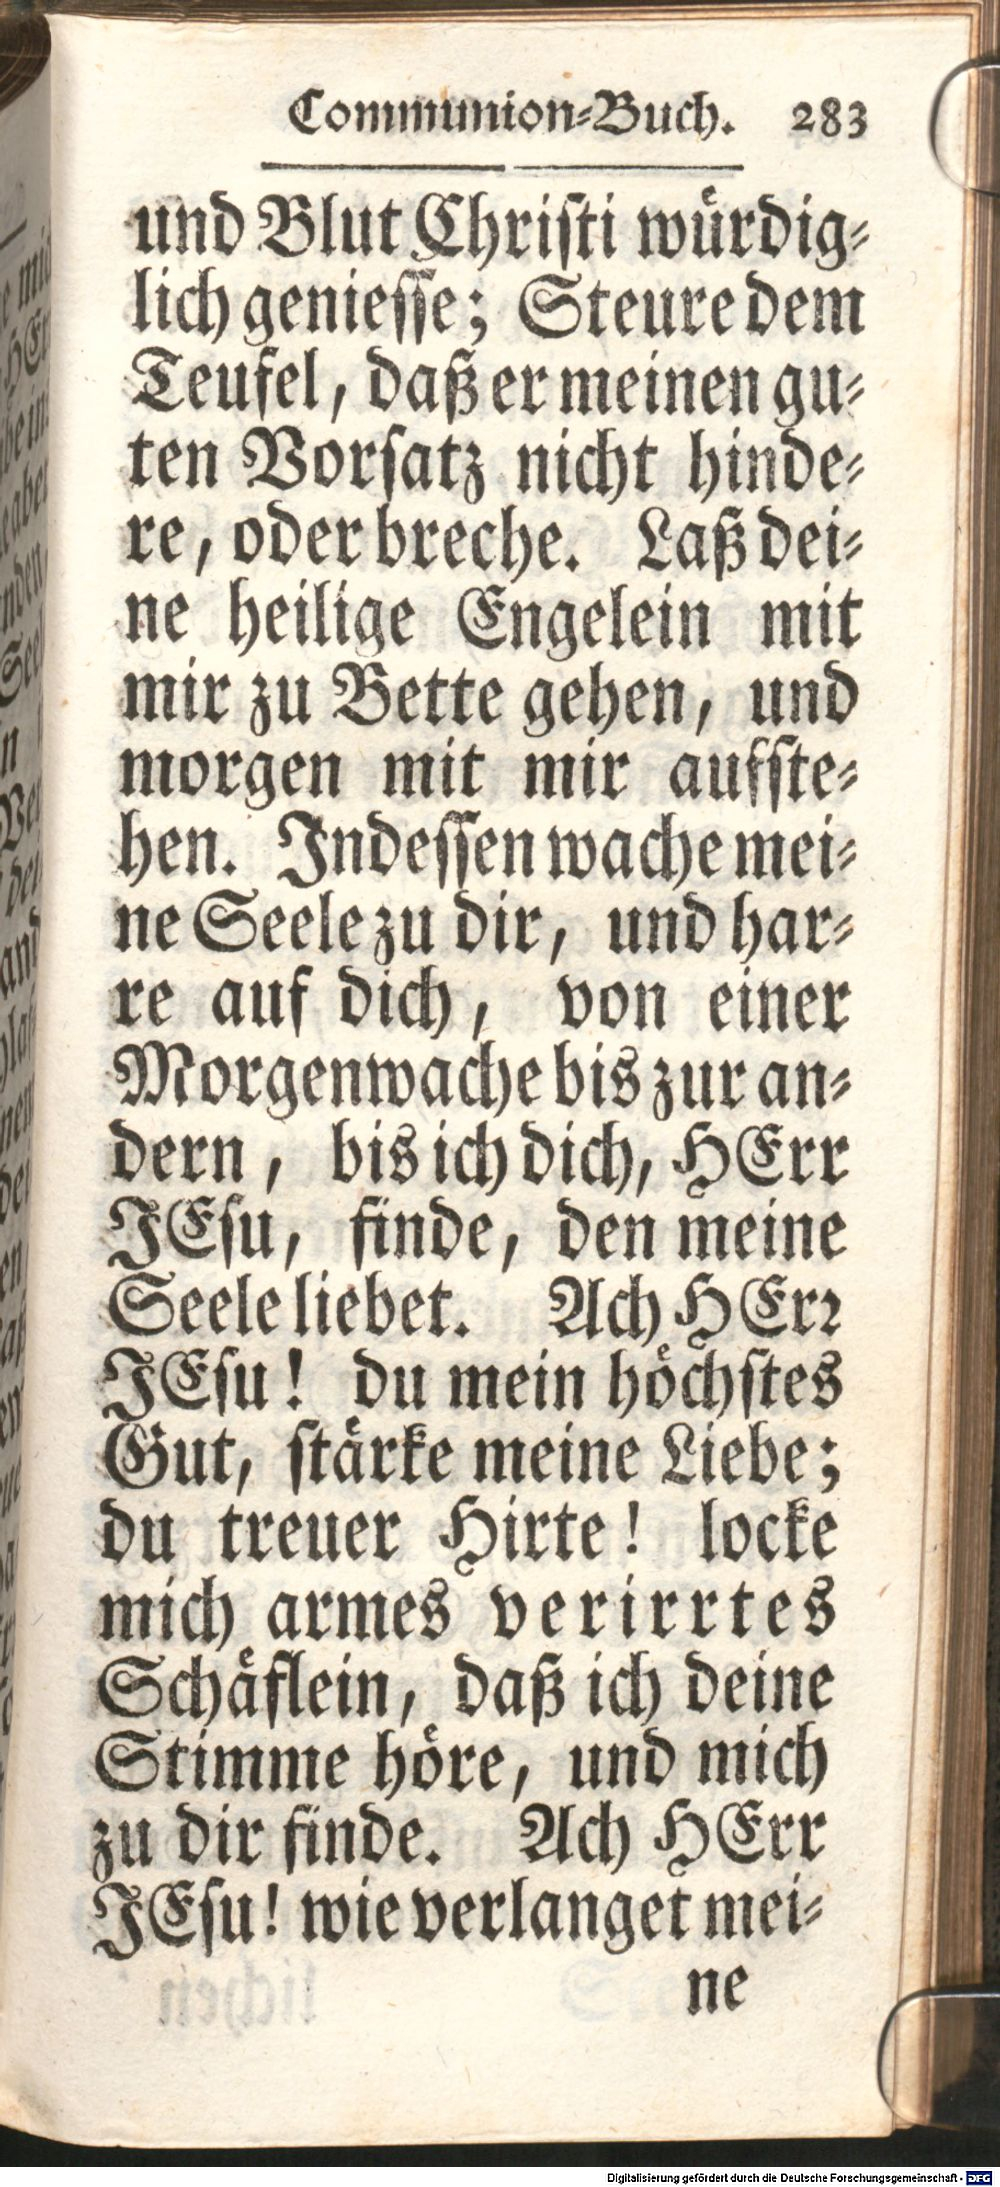 Communion-Buch. 283
und Blut Christi würdig-
lich geniesse; Steure dem
Teufel, daß er meinen gu-
ten Vorsatz nicht hinde-
re, oder breche. Laß dei-
ne heilige Engelein mit
mir zu Bette gehen, und
morgen mit mir aufste-
hen. Indessen wache mei-
ne Seele zu dir, und har-
re auf dich, von einer
Morgenwache bis zur an-
dern, bis ich dich, HErr
JEsu, finde, den meine
Seele liebet. Ach HErr
JEsu! du mein höchstes
Gut, stärke meine Liebe;
du treuer Hirte! locke
mich armes verirrtes
Schäflein, daß ich deine
Stimme höre, und mich
zu dir finde. Ach HErr
JEsu! wie verlanget mei-
ne
Digitalisierung gefördert durch die Deutsche Forschungsgemeinschaft - DFG